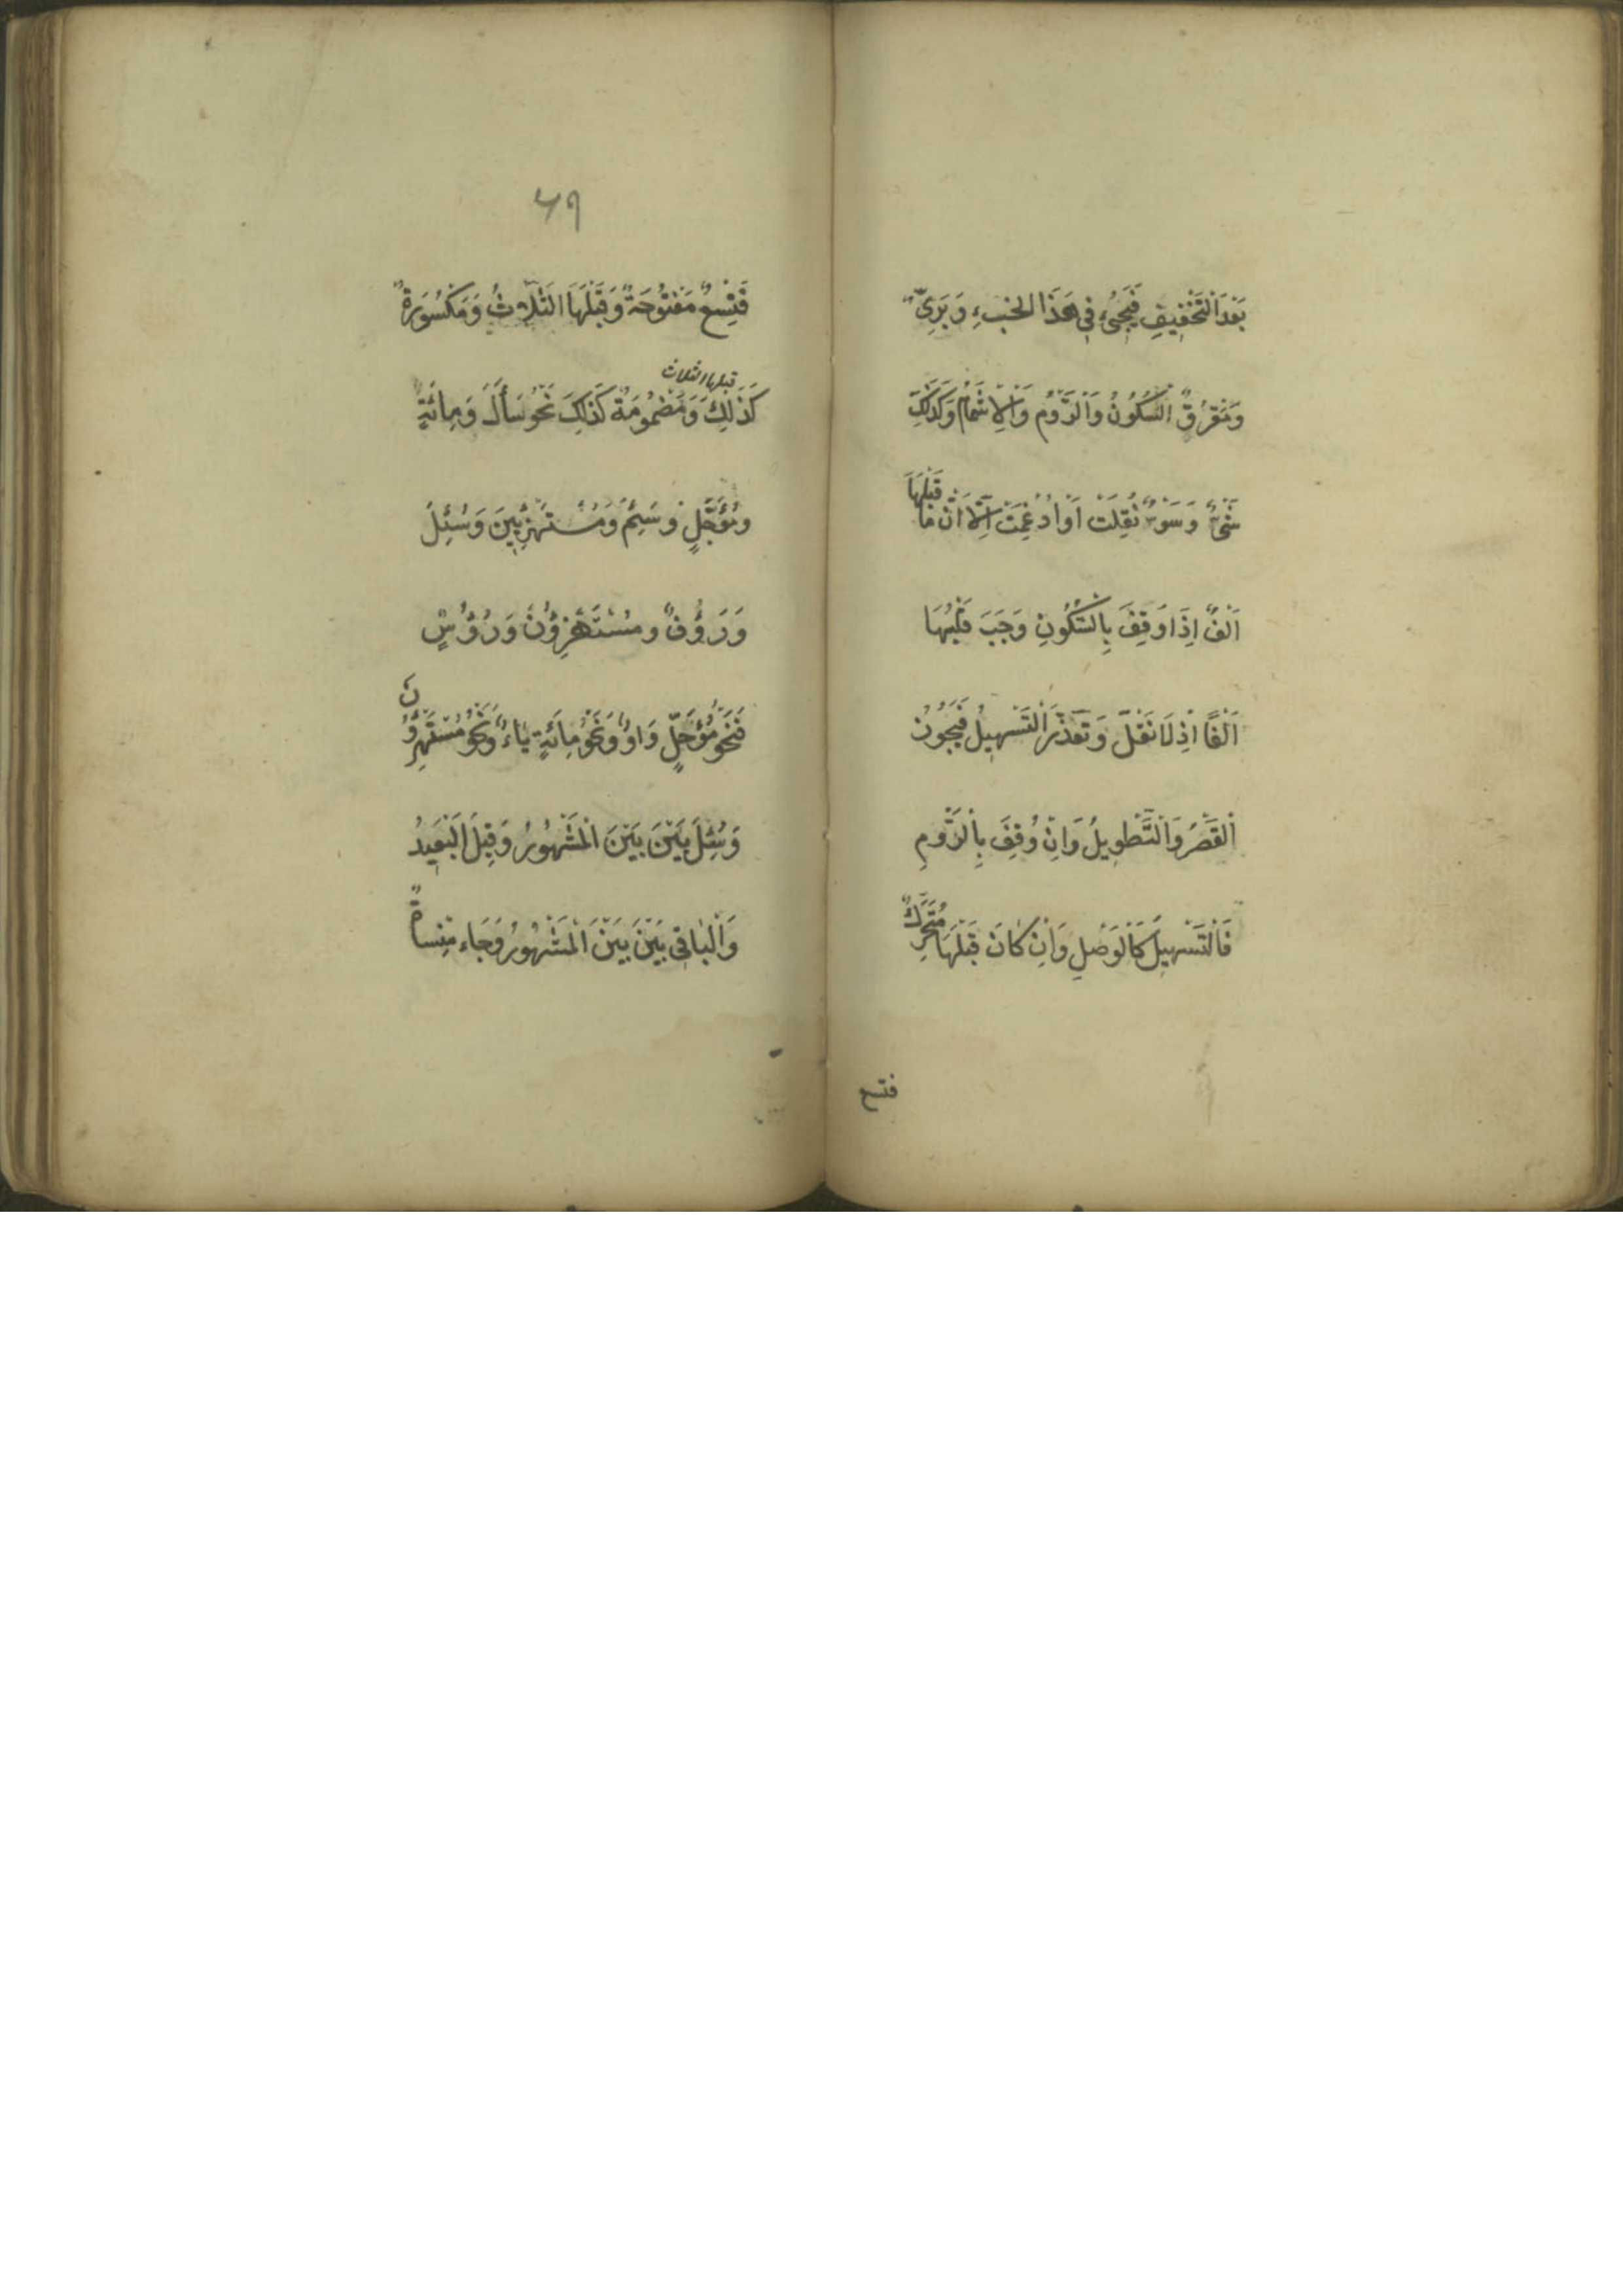 بَعْدَ اَلتَّخْفِيفِ فَيَجِیُٔ فِي هَذَا الخبْءِ وَبَرِیٌّ
وَمَقْرُوٌّ السُّكُونُ وَاَلرَّوْمُ وَالْاِشْمَامُ وَكَذَلِكَ
شَیْءٌ وَسَوْءٌ نُقِلَتْ اَوْ اُدْغِمَتْ اِلَّا اَنَّ مَا قَبْلَهَا
اَلِفٌ اِذَا وُقِفَ بِالسُّكُونِ وَجَبَ قَلْبُهَا
اَلْفًا اِذْ لَا نَقْلَ وَتَعَذَّرَ اَلتَّسْهِيلُ فَيَجُوزُ
اَلْقَصْرُ وَالتَّطْوِيلُ وَاِنْ وُقِفَ بِالرَّوْمِ
فَالتَّسْهِيلُ كَالْوَصْلِ وَاِنْ كَانَ قَبْلَهَا مُتَحَرِّكٌ
فتسع
٤٩
فَتِسْعٌ مَفْتُوحَةٌ وَقَبْلَهَا الثَّلَاثُ وَمَكْسُورَةٌ
كَذَلِكَ وَمَضْمُومَةٌ كَذَلِكَ نَحْوُ سَأَلَ وَمِائَةٍ
قبلها الثلاث
وَمُؤَجَّلٍ وَسَئِمَ وَمُسْتَهْزِئِينَ وَسُئِلَ
وَرَؤُفٌ وَمُسْتَهْزِؤُنَ وَرُؤُسٍ
فَنَحْوُ مُؤَجَّلٍ وَاوٌ وَنَحْوُ مِائَةٍ يَاءٌ وَنَحْوُ مُسْتَهْزِؤُنَ
وَسُئِلَ بَيْنَ بَيْنَ الْمَشْهُورُ وَقِيلَ الْبَعِيدُ
وَالْبَاقِي بَيْنَ بَيْنَ الْمَشْهُورُ وَجَاء مِنْسَاةٌ